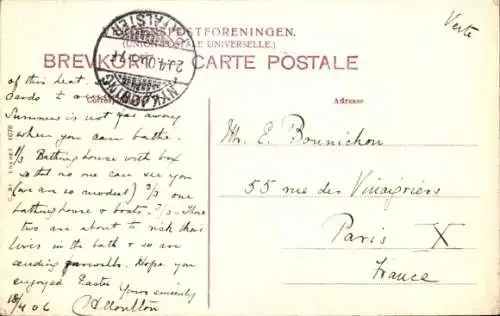 Verte
VERDENSPOSTFORENINGEN.
(UNION POSTALE UNIVERSELLE.)
BREVKORT. CARTE POSTALE
Adresse
NYKJØBING
FALSTER
of this Seat.
Cards to
Summer is not far away
when you can bathe.
1/3 Bathing house with box
so that no one can see you
(we are so modest) 2/3 one
bathing house & boats. 3/3 - These
two are about to risk their
lives in the bath & so are
sending farewells. Hope you
enjoyed Easter
Yours sincerely
18/4 06
Mr. E. Bonnichon
55 rue des Vinaigriers
Paris X
France